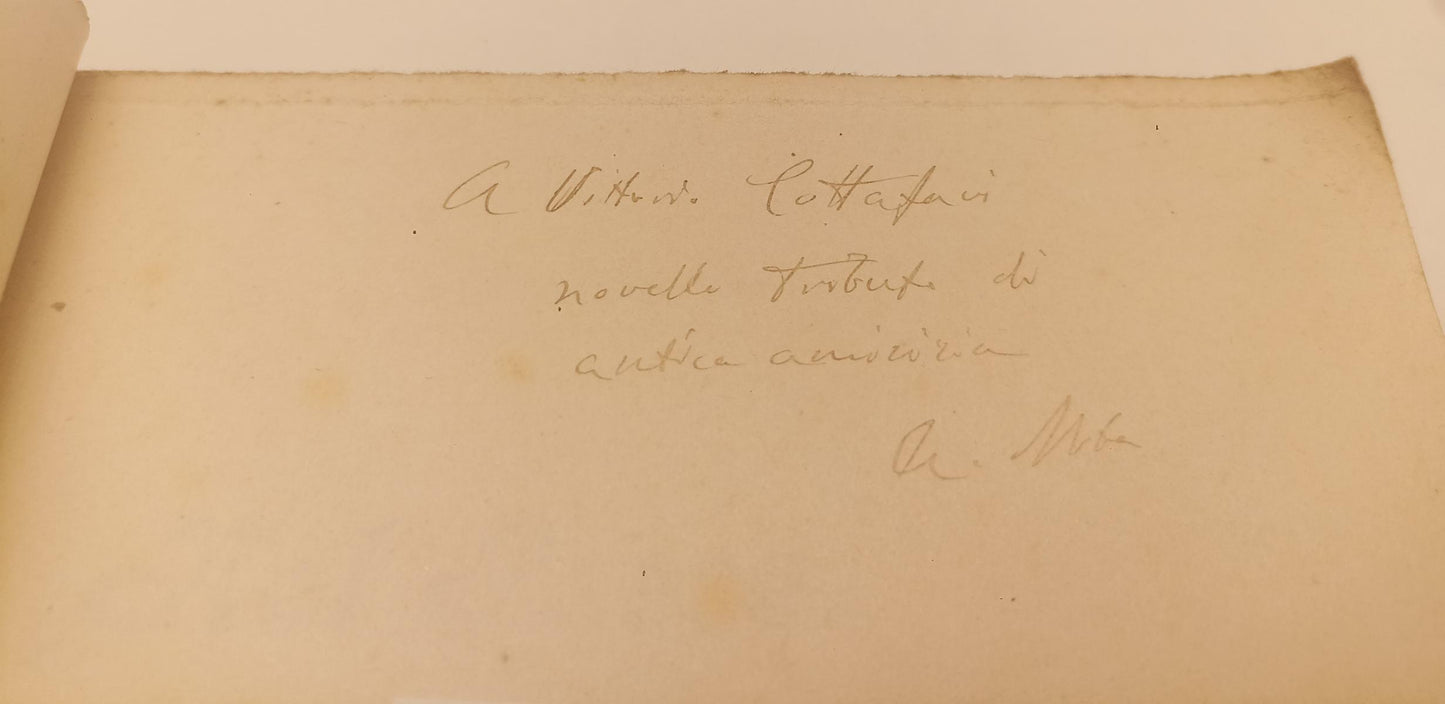 A Vittorio Cottafavi
novello tributo di
antica amicizia